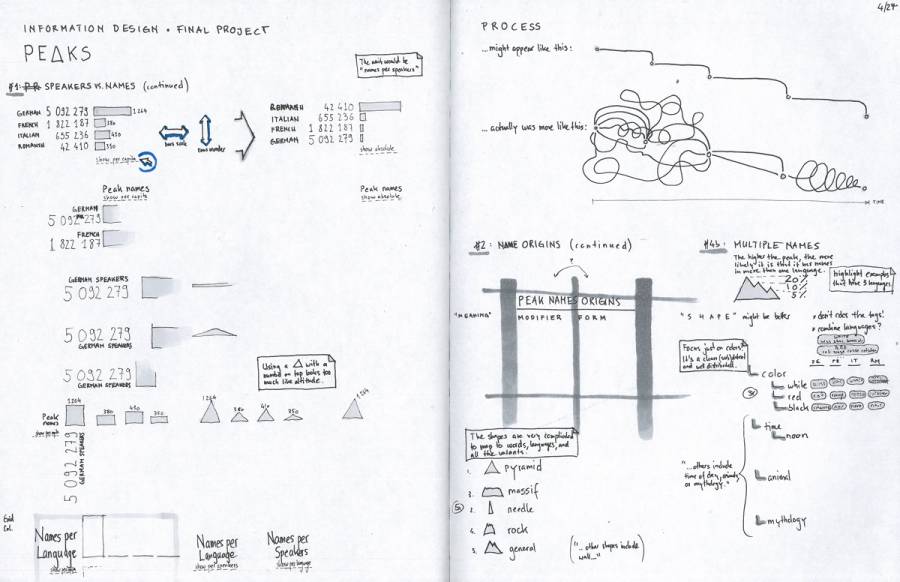 INFORMATION DESIGN • FINAL PROJECT
PEAKS
The unit would be
"names per speakers"
#1: SPEAKERS VS. NAMES (continued)
GERMAN 5 092 279 1264
FRENCH 1 822 187 380
ITALIAN 655 236 410
ROMANSH 42 410 350
show per capita
bars scale
rows reorder
ROMANSH 42 410
ITALIAN 655 236
FRENCH 1 822 187
GERMAN 5 092 279
show absolute
Peak names
show per capita
Peak names
show absolute
GERMAN
5 092 279
FRENCH
1 822 187
GERMAN SPEAKERS
5 092 279
5 092 279
GERMAN SPEAKERS
5 092 279
GERMAN SPEAKERS
Using a △ with a
number on top looks too
much like altitude.
Peak
names
show people
1264
380
410
350
1264
380
410
350
1264
5 092 279
GERMAN SPEAKERS
Grid
Col.
Names per
Language
Names per
Language
show per speakers
Names per
Speakers
show per language
4/24
PROCESS
...might appear like this:
...actually was more like this:
TIME
#2: NAME ORIGINS (continued)
?
PEAK NAMES ORIGINS
"MEANING"
MODIFIER FORM
"SHAPE" might be better
The shapes are very complicated
to map to words, languages, and
all the variants.
1. pyramid
2. massif
3. needle
4. rock
5. general
("... other shapes include
wall...")
#4b: MULTIPLE NAMES
The higher the peak, the more
likely it is that it has names
in more than one language.
20%
10%
5%
Highlight examples
that have 3 languages.
• don't rotate the tags!
• combine languages?
Focus just on colors?
It's a clean (sub)detail
and well distributed.
DE FR IT RM
color
white
red
black
time
noon
animal
mythology
"...others include
time of day, animals
or mythology."